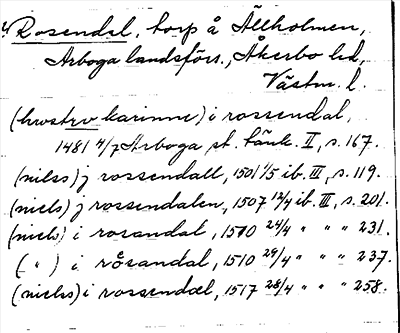 Rosendal, torp å Ällholmen,
Arboga landsförs., Åkerbo hd,
Västm. l.
(hwstrv karinne) i rossendal,
1481 4/7 Arboga st. tänk. II, s. 167.
(nilss) j rossendall, 1501 1/5 ib. III, s. 119.
(niels) j rossendalen, 1507 12/4 ib. III, s. 201.
(niels) i rosandal, 1510 24/4 " " " 231.
( " ) i råsandal, 1510 24/4 " " " 237.
(nielss) i rossendæl, 1517 28/4 " " " 258.